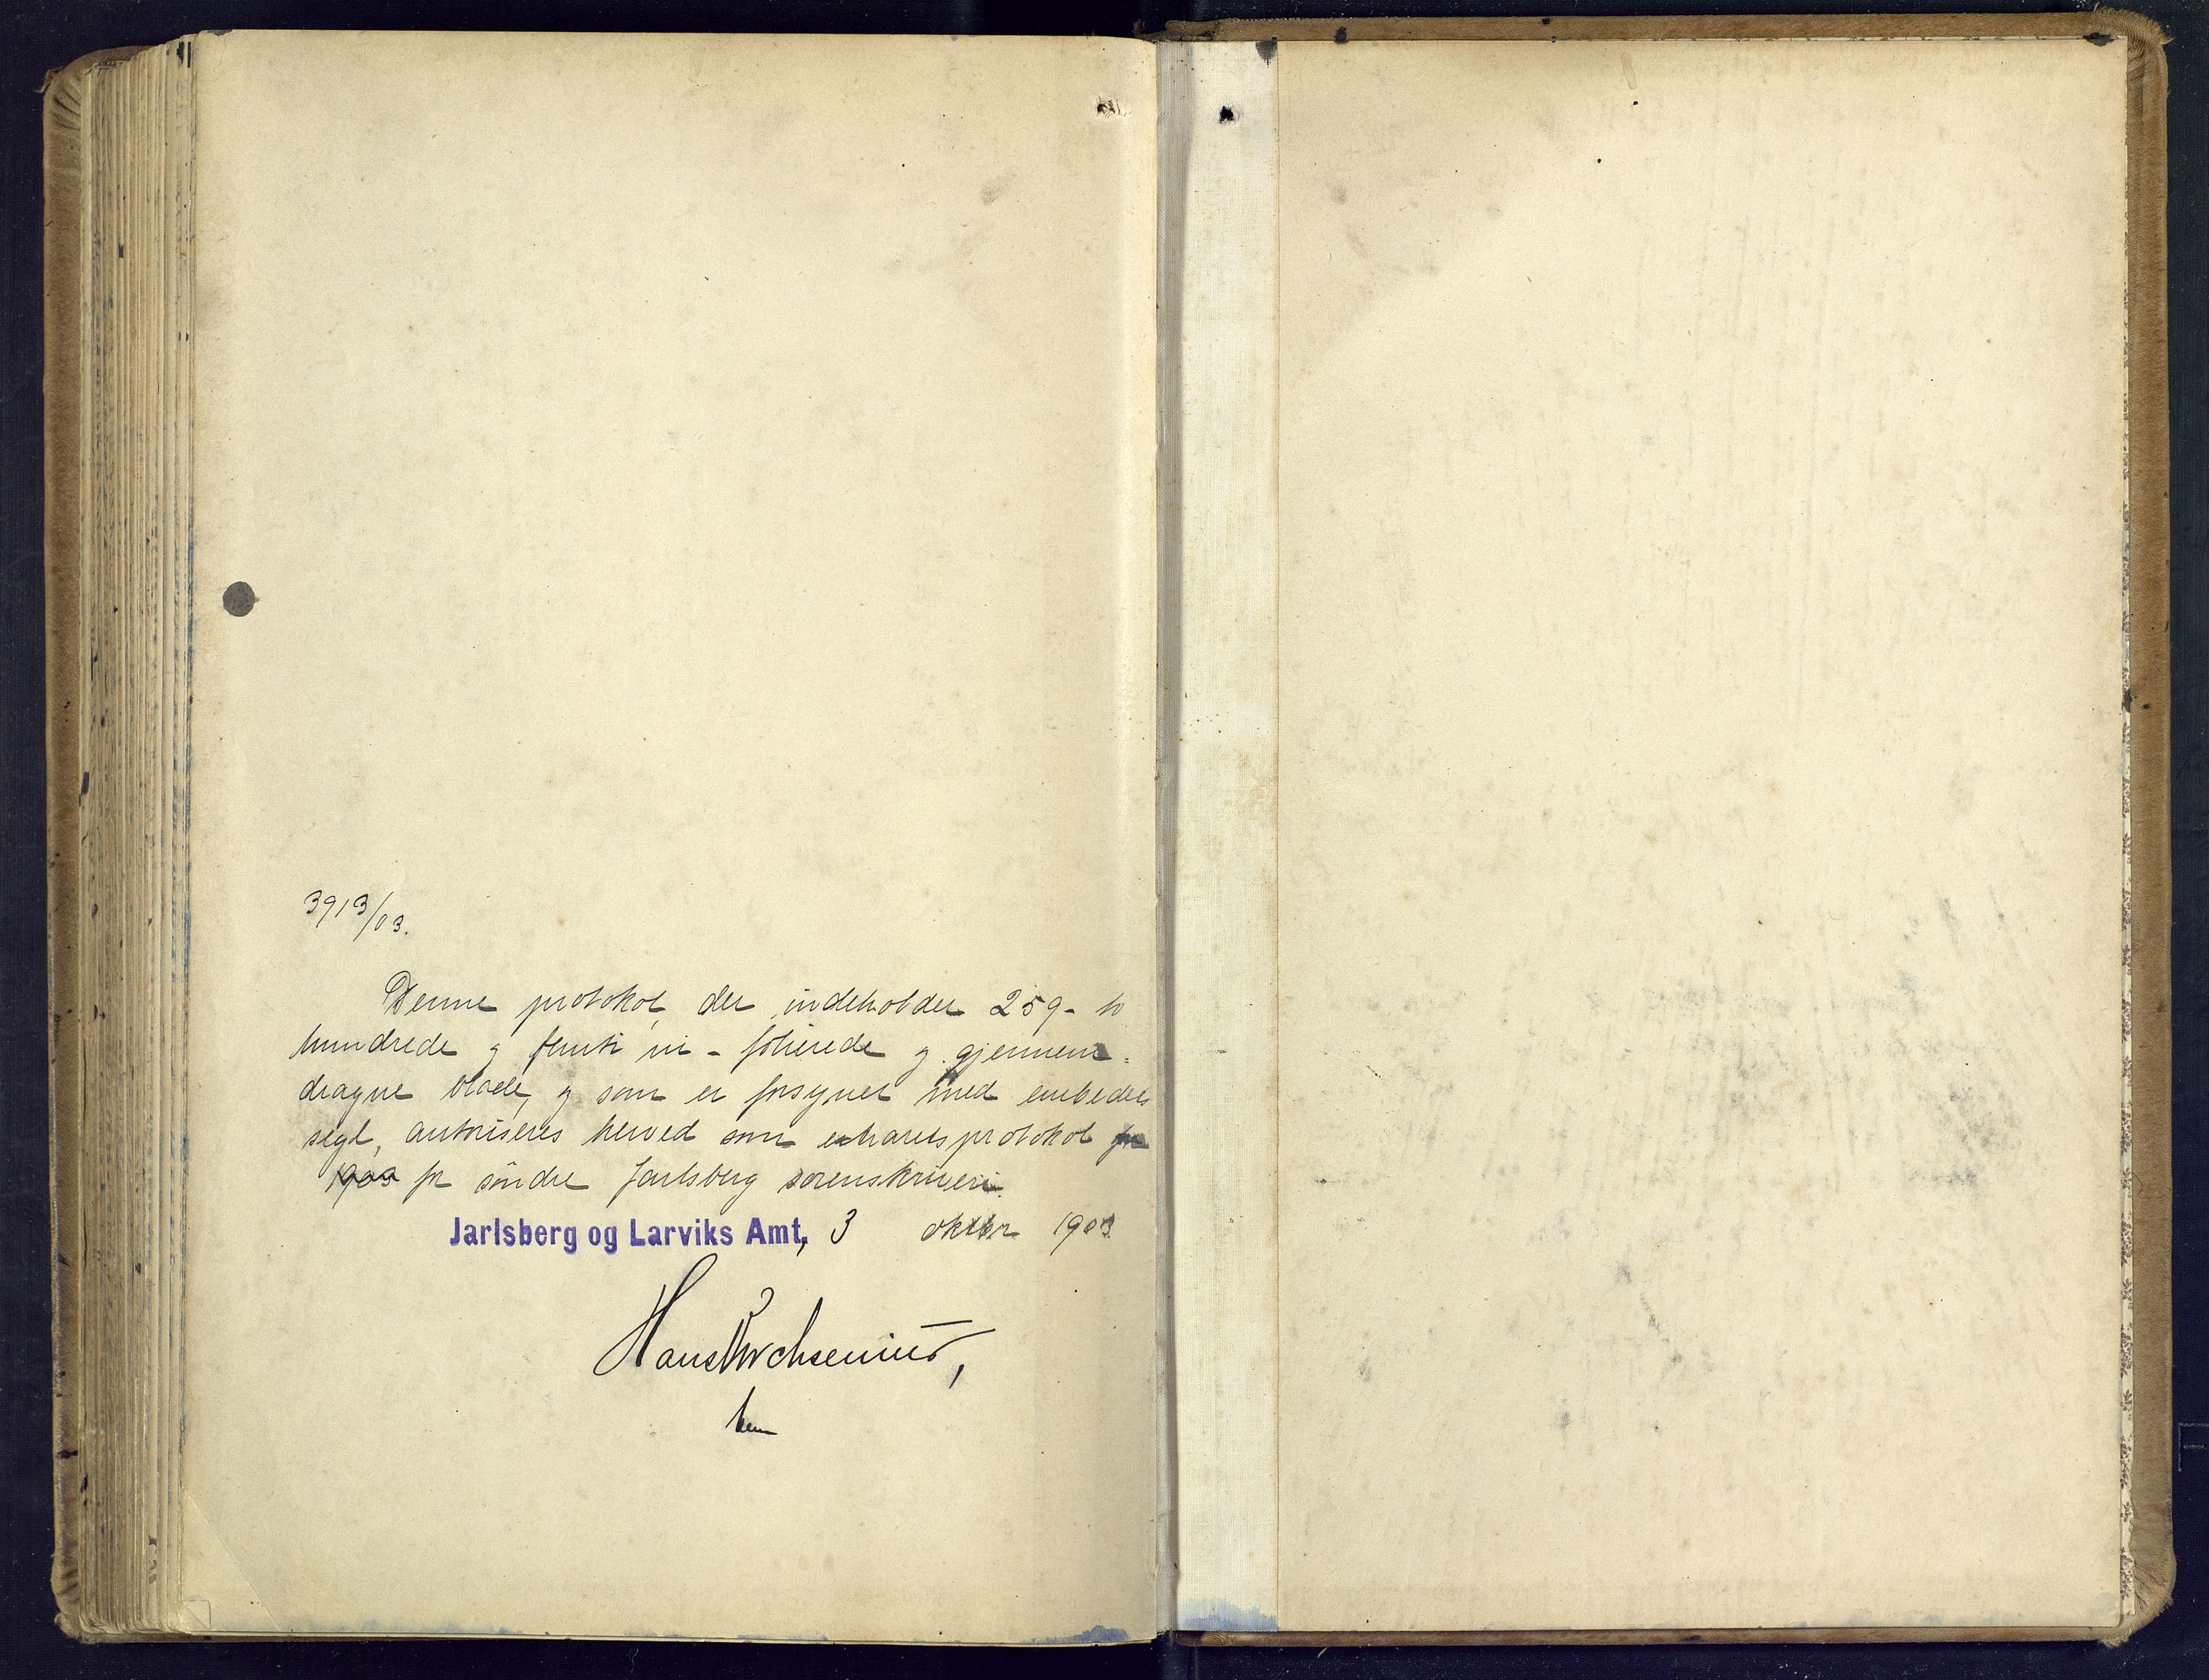 3913/03.
Denne protokol, der indeholder 259 - to
hundrede og femti ni - folierede og gjennem-
dragne blade, og som er forsynet med embedets
segl, autoriseres herved som extraretsprotokol for
1903 for søndre Jarlsberg sorenskriveri.
Jarlsberg og Larviks Amt, 3 oktbr 1903
Hans